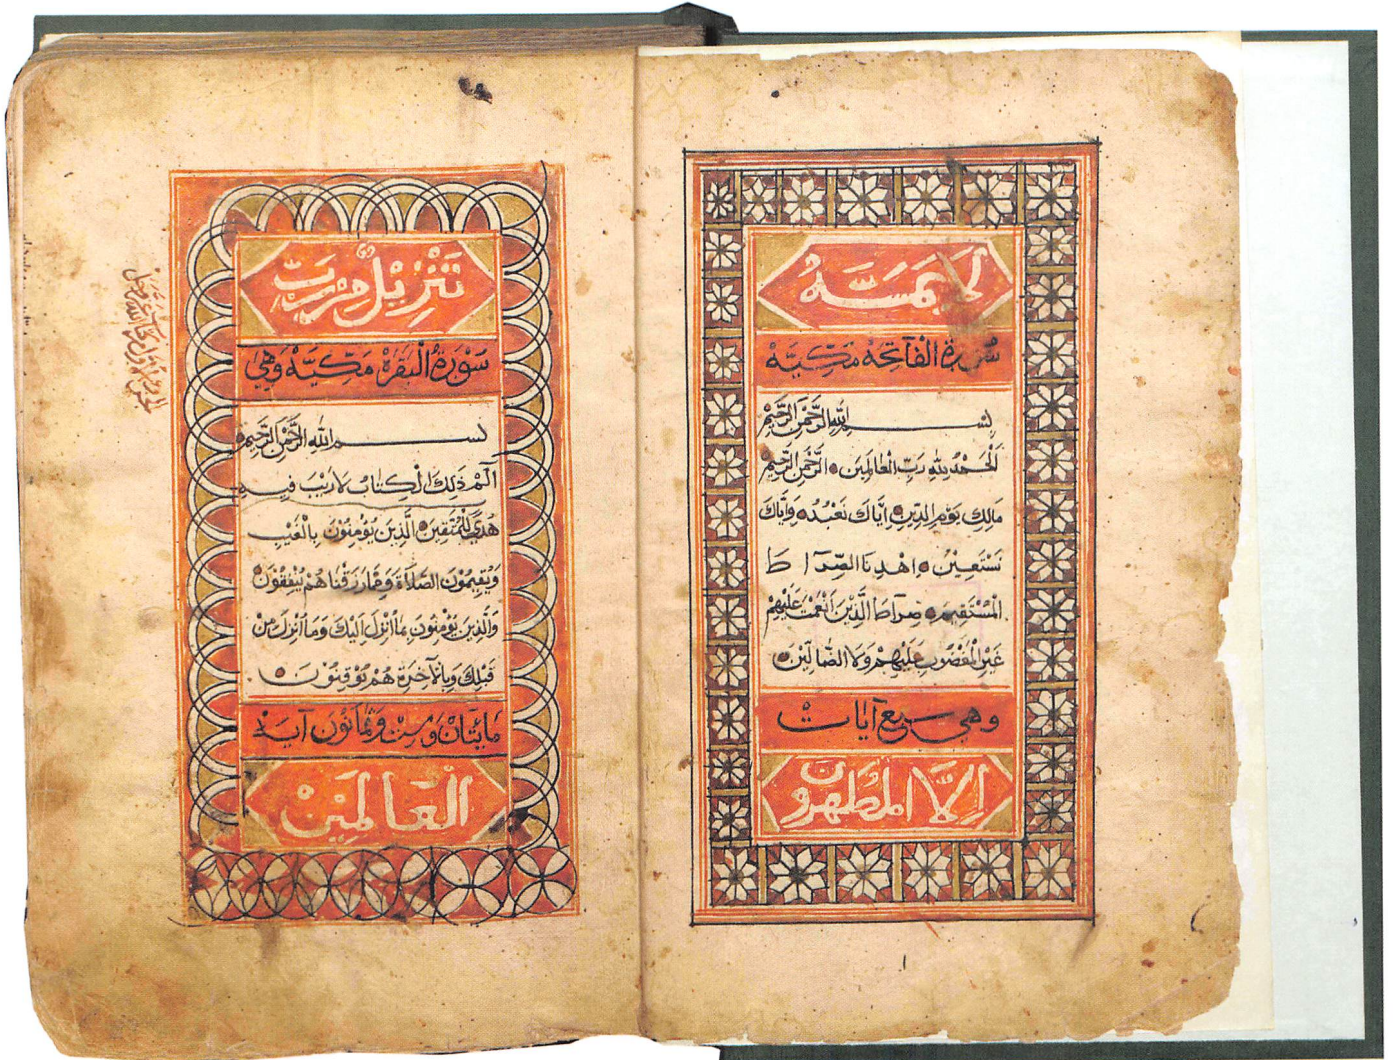 لَا يَمَسُّهُ
سُورَةُ الْفَاتِحَةِ مَكِّيَّةْ
بِسْمِ اللهِ الرَّحْمٰنِ الرَّحِيْمِ
اَلْحَمْدُ لِلهِ رَبِّ الْعَالَمِيْنَ الرَّحْمٰنِ الرَّحِيْمِ
مَالِكِ يَوْمِ الدِّيْنِ اِيَّاكَ نَعْبُدُ وَاِيَّاكَ
نَسْتَعِيْنُ اِهْدِنَا الصِّرَاطَ
الْمُسْتَقِيْمَ صِرَاطَ الَّذِيْنَ اَنْعَمْتَ عَلَيْهِمْ
غَيْرِ الْمَغْضُوْبِ عَلَيْهِمْ وَلَا الضَّالِّيْنَ
وهي سبع آيات
اِلَّا المُطَهَّرُونَ
تَنْزِيْلٌ مِنْ رَبِّ
سُوْرَةُ الْبَقَرَةْ مَكِّيَّةْ وَهْيَ
بِسْمِ اللهِ الرَّحْمٰنِ الرَّحِيْمِ
الٓمٓ ذٰلِكَ الْكِتَابُ لَا رَيْبَ فِيْهِ
هُدًى لِلْمُتَّقِيْنَ الَّذِيْنَ يُؤْمِنُوْنَ بِالْغَيْبِ
وَيُقِيْمُوْنَ الصَّلَاةَ وَمِمَّا رَزَقْنَاهُمْ يُنْفِقُوْنَ
وَالَّذِيْنَ يُؤْمِنُوْنَ بِمَا اُنْزِلَ اِلَيْكَ وَمَا اُنْزِلَ مِنْ
قَبْلِكَ وَبِالْآخِرَةِ هُمْ يُوْقِنُوْنَ
مَائَتَانْ وَسِتْ وَثَمَانُوْنَ آيَة
الْعَالَمِيْنَ